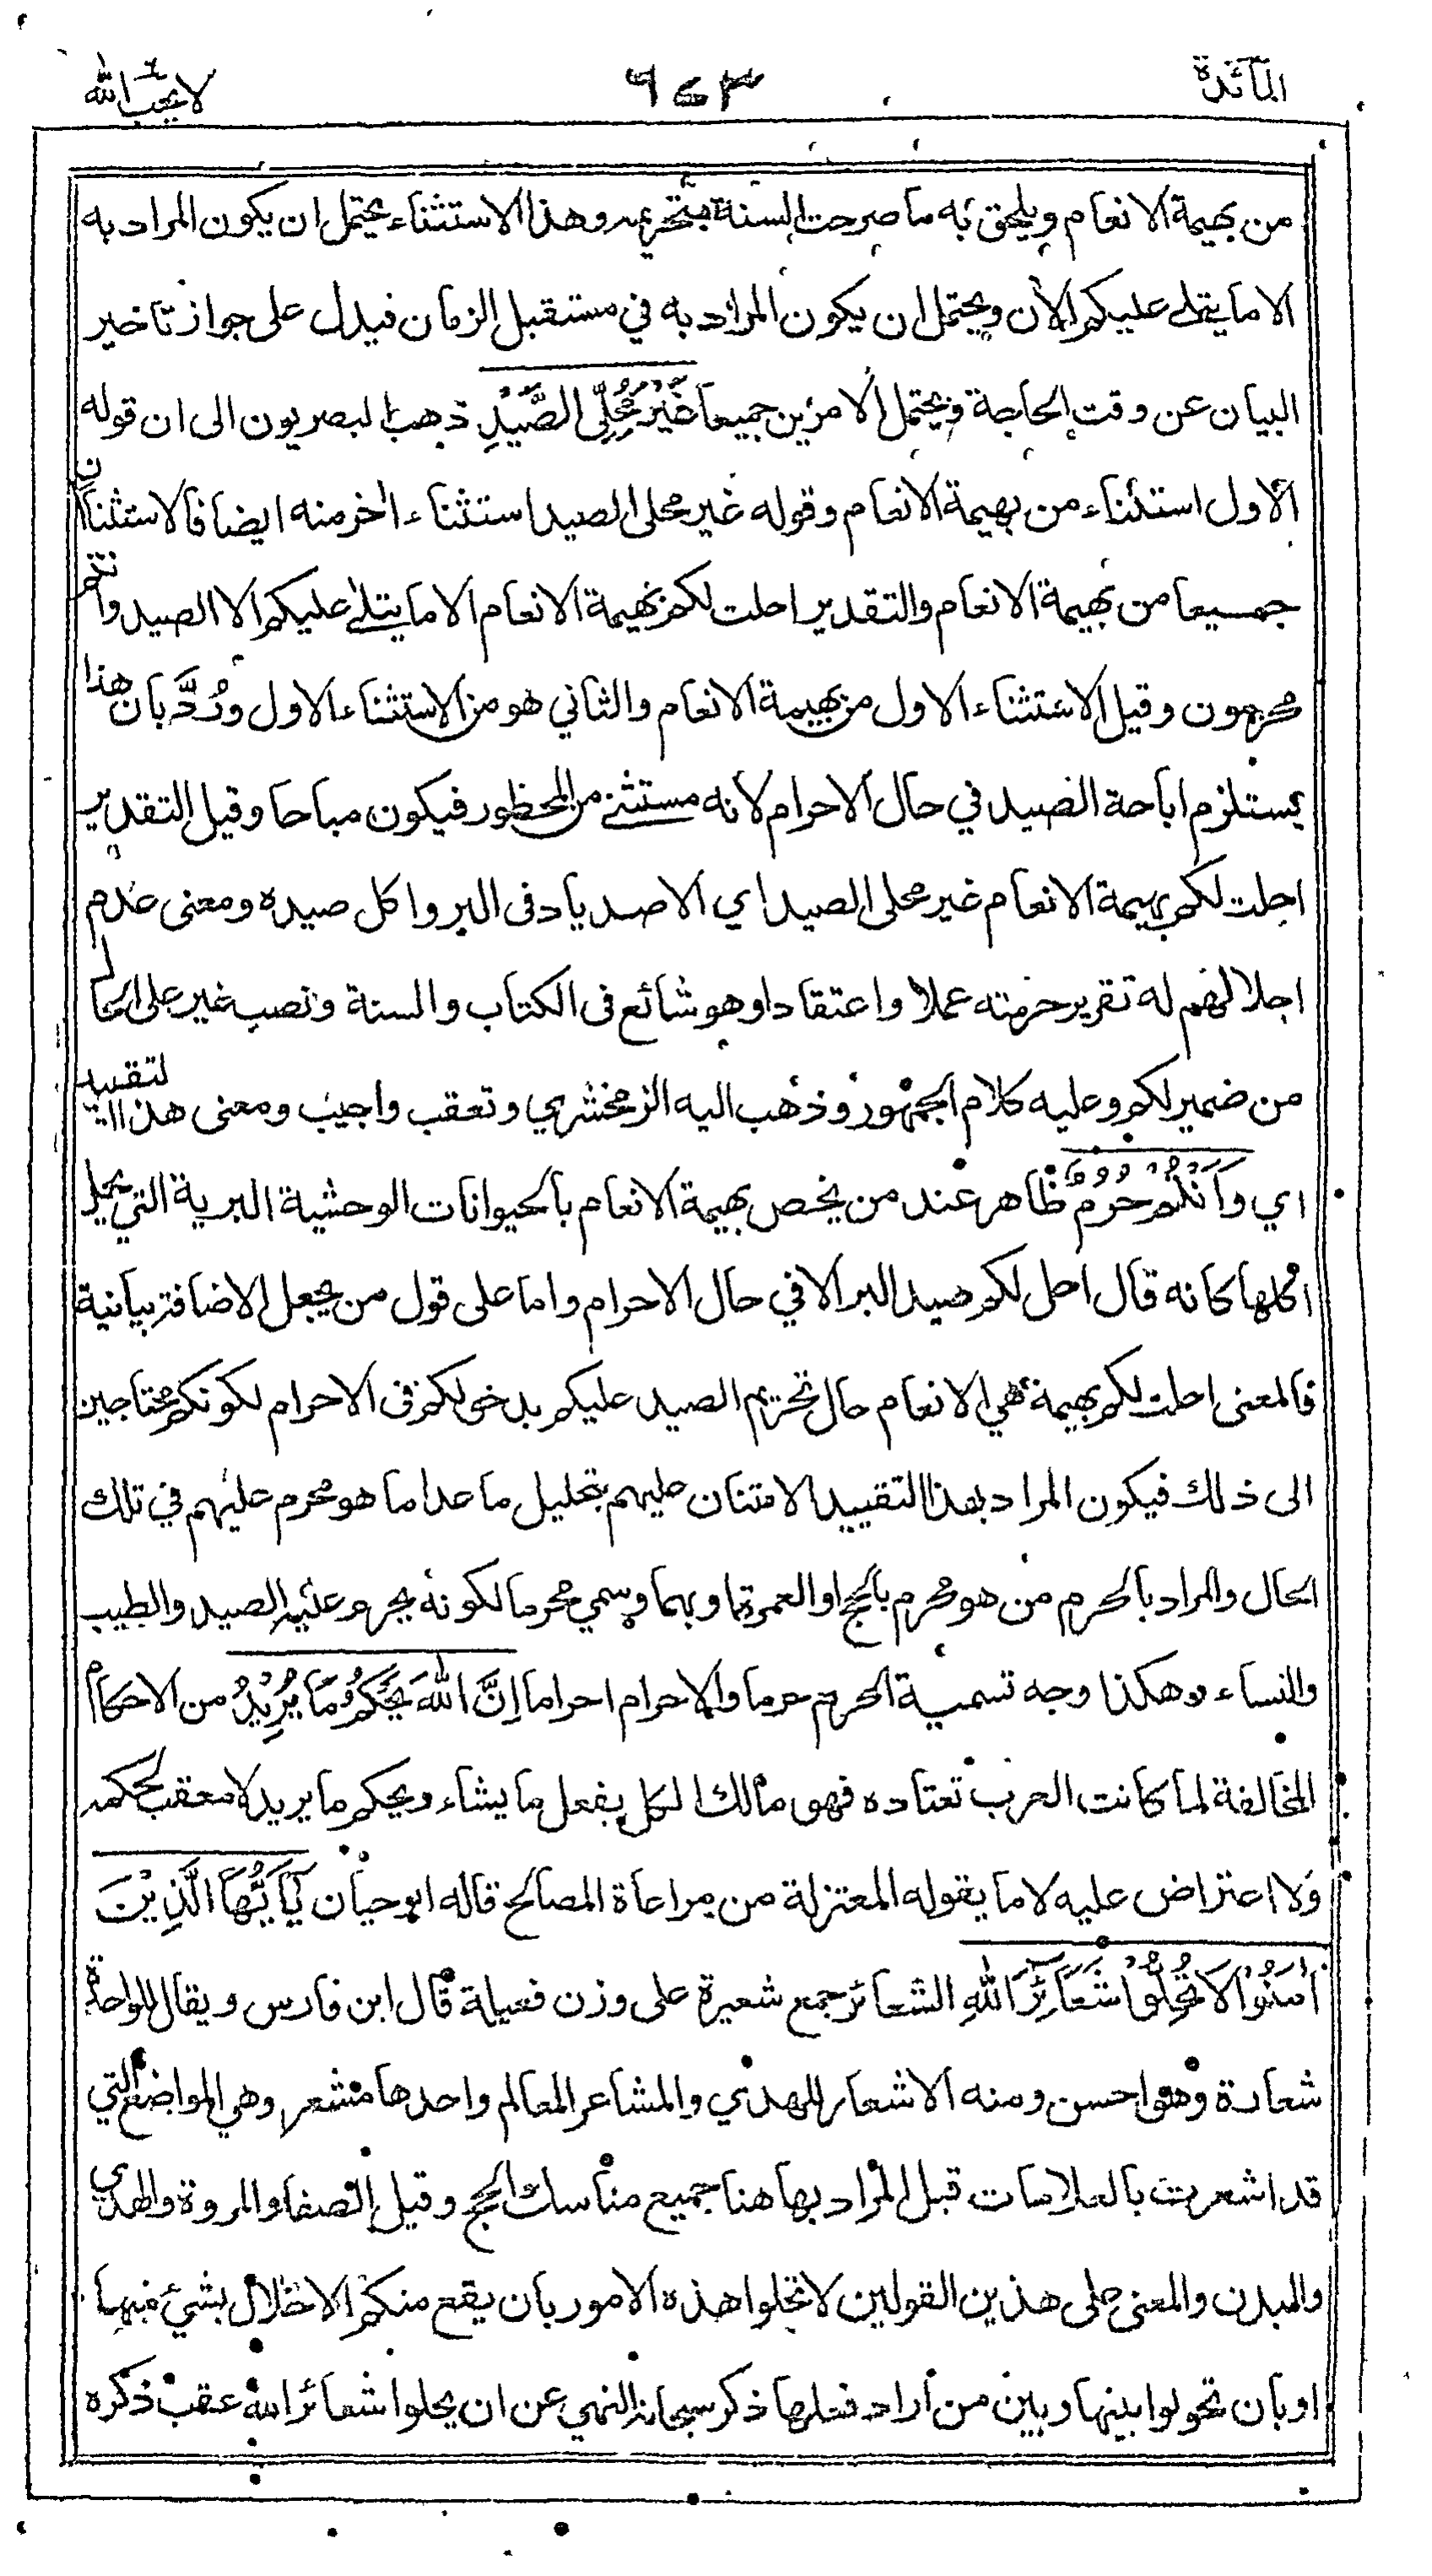 المآئدة
٦٤٣
لا يحب الله
من بهيمة الانعام ويلحق به ما صرحت السنة بتحريمه وهذا الاستثناء يحتمل ان يكون المراد به
الا ما يتلى عليكم الأن ويحتمل ان يكون المراد به في مستقبل الزمان فيدل على جواز تاخير
البيان عن وقت الحاجة ويحتمل الامرين جميعا غَيْرَ مُحِلِّى الصَّيْدِ ذهب البصريون الى ان قوله
الاول استثناء من بهيمة الانعام وقوله غير محلى الصيد استثناء اخر منه ايضا فالاستثناان
جميعا من بهيمة الانعام والتقدير احلت لكم بهيمة الانعام الا ما يتلى عليكم الا الصيد وانتم
محرمون وقيل الاستثناء الاول من بهيمة الانعام والثاني هو من الاستثناء الاول ورُدَّ بان هذا
يستلزم اباحة الصيد في حال الاحرام لانه مستثنى من المحظور فيكون مباحا وقيل التقدير
احلت لكم بهيمة الانعام غير محلى الصيد اي الاصدياد فى البر واكل صيده ومعنى عدم
احلالهم له تقرير حرمته عملا واعتقادا وهو شائع فى الكتاب والسنة ونصب غير على الحال
من ضمير لكم وعليه كلام الجمهور وذهب اليه الزمخشري وتعقب واجيب ومعنى هذا التقييد
اي وَاَنْتُمْ حُرُمٌ ظاهر عند من يخص بهيمة الانعام بالحيوانات الوحشية البرية التي يحل
اكلها كانه قال احل لكم صيد البر الا في حال الاحرام واما على قول من يجعل الاضافة بيانية
فالمعنى احلت لكم بهيمة هي الانعام حال تحريم الصيد عليكم بدخولكم فى الاحرام لكونكم محتاجين
الى ذلك فيكون المراد بهذا التقييد الامتنان عليهم بتحليل ما عدا ما هو محرم عليهم في تلك
الحال والمراد بالحرم من هو محرم بالحج او العمرة او بهما وسمي محرما لكونه يحرم عليه الصيد والطيب
والنساء وهكذا وجه تسمية الحرم حرما والاحرام احراما اِنَّ اللّٰهَ يَحْكُمُ مَا يُرِيْدُ من الاحكام
المخالفة لما كانت العرب تعتاده فهو مالك الكل يفعل ما يشاء ويحكم ما يريد لا معقب لحكمه
ولا اعتراض عليه لا ما يقوله المعتزلة من مراعاة المصالح قاله ابو حيان يَآ اَيُّهَا الَّذِيْنَ
اٰمَنُوْا لَا تُحِلُّوْا شَعَآئِرَ اللّٰهِ الشعائر جمع شعيرة على وزن فعيلة قال ابن فارس ويقال للواحدة
شعارة وهو احسن ومنه الاشعار للهدي والمشاعر المعالم واحدها مشعر وهي المواضع التي
قد اشعرت بالعلامات قيل المراد بها هنا جميع مناسك الحج وقيل الصفا والمروة والهدي
والبدن والمعنى على هذين القولين لا تحلوا هذه الامور بان يقع منكم الاخلال بشيء منها
او بان تحولوا بينها وبين من اراد فعلها ذكر سبحانه النهي عن ان يحلوا شعائر الله عقب ذكره